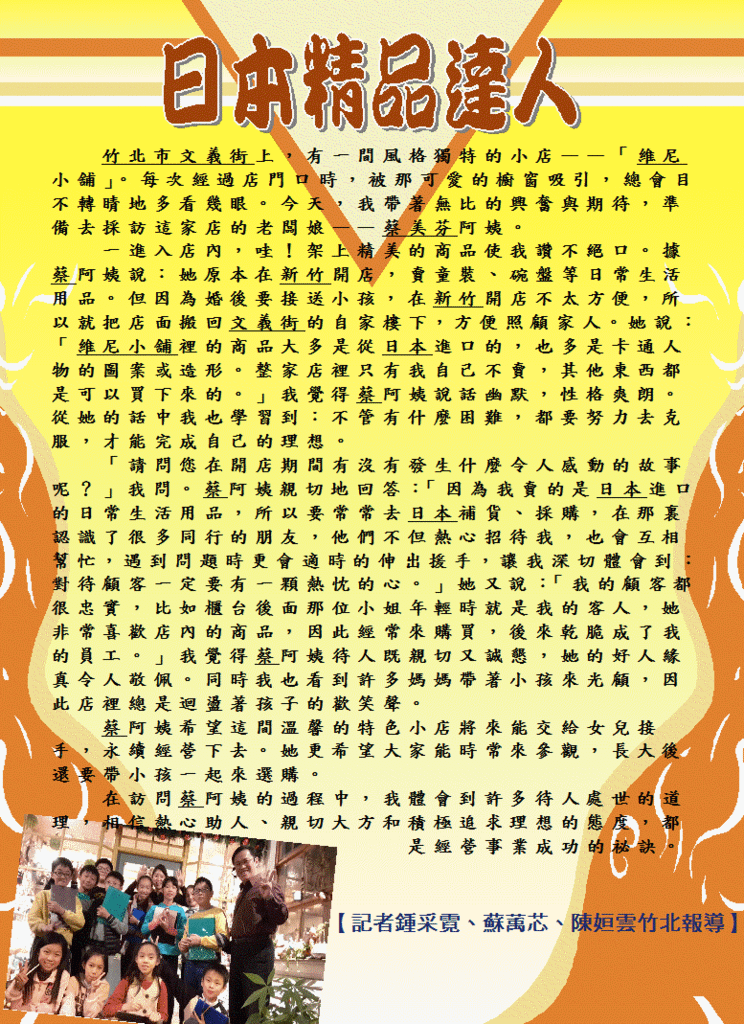 日本精品達人
竹北市文義街上，有一間風格獨特的小店——「維尼
小舖」。每次經過店門口時，被那可愛的櫥窗吸引，總會目
不轉睛地多看幾眼。今天，我帶著無比的興奮與期待，準
備去採訪這家店的老闆娘——蔡美芬阿姨。
一進入店內，哇！架上精美的商品使我讚不絕口。據
蔡阿姨說：她原本在新竹開店，賣童裝、碗盤等日常生活
用品。但因為婚後要接送小孩，在新竹開店不太方便，所
以就把店面搬回文義街的自家樓下，方便照顧家人。她說：
「維尼小舖裡的商品大多是從日本進口的，也多是卡通人
物的圖案或造形。整家店裡只有我自己不賣，其他東西都
是可以買下來的。」我覺得蔡阿姨說話幽默，性格爽朗。
從她的話中我也學習到：不管有什麼困難，都要努力去克
服，才能完成自己的理想。
「請問您在開店期間有沒有發生什麼令人感動的故事
呢？」我問。蔡阿姨親切地回答：「因為我賣的是日本進口
的日常生活用品，所以要常常去日本補貨、採購，在那裏
認識了很多同行的朋友，他們不但熱心招待我，也會互相
幫忙，遇到問題時更會適時的伸出援手，讓我深切體會到：
對待顧客一定要有一顆熱忱的心。」她又說：「我的顧客都
很忠實，比如櫃台後面那位小姐年輕時就是我的客人，她
非常喜歡店內的商品，因此經常來購買，後來乾脆成了我
的員工。」我覺得蔡阿姨待人既親切又誠懇，她的好人緣
真令人敬佩。同時我也看到許多媽媽帶著小孩來光顧，因
此店裡總是迴盪著孩子的歡笑聲。
蔡阿姨希望這間溫馨的特色小店將來能交給女兒接
手，永續經營下去。她更希望大家能時常來參觀，長大後
還要帶小孩一起來選購。
在訪問蔡阿姨的過程中，我體會到許多待人處世的道
理，相信熱心助人、親切大方和積極追求理想的態度，都
是經營事業成功的祕訣。
【記者鍾采霓、蘇萬芯、陳姮雲竹北報導】